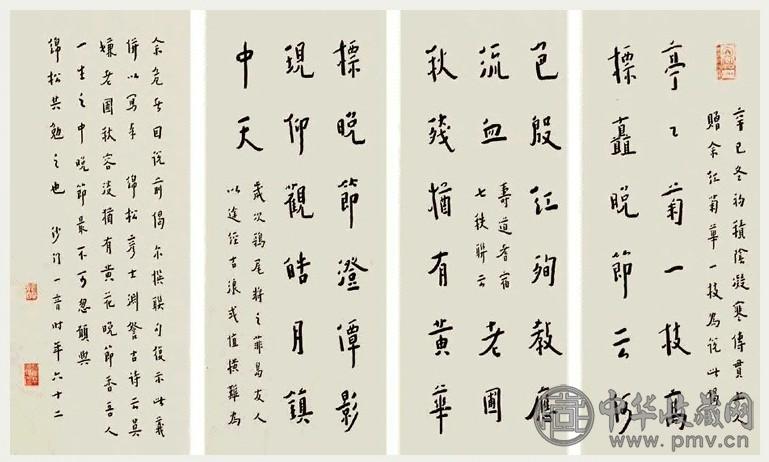 辛巳冬初積陰凝寒傳貫
贈余紅菊華一枝為說此偈
亭〻菊一枝高
標矗晚節云何
色殷紅殉教應
流血
壽道香宿
七秩聯云
老圃
秋殘猶有黃華
標晚節澄潭影
現仰觀皓月鎮
中天
歲次鶉尾將之菲島友人
以途經古浪或值橫難為
余危者因說前偈尒撰聯句復示此義
併以寫奉 綿松彥士淵鑒古詩云莫
嫌老圃秋容淡猶有黃花晚節香吾人
一生之中晚節最不可忽願與
綿松共勉之也 沙門一音時年六十二
中华收藏网
www.pmv.cn